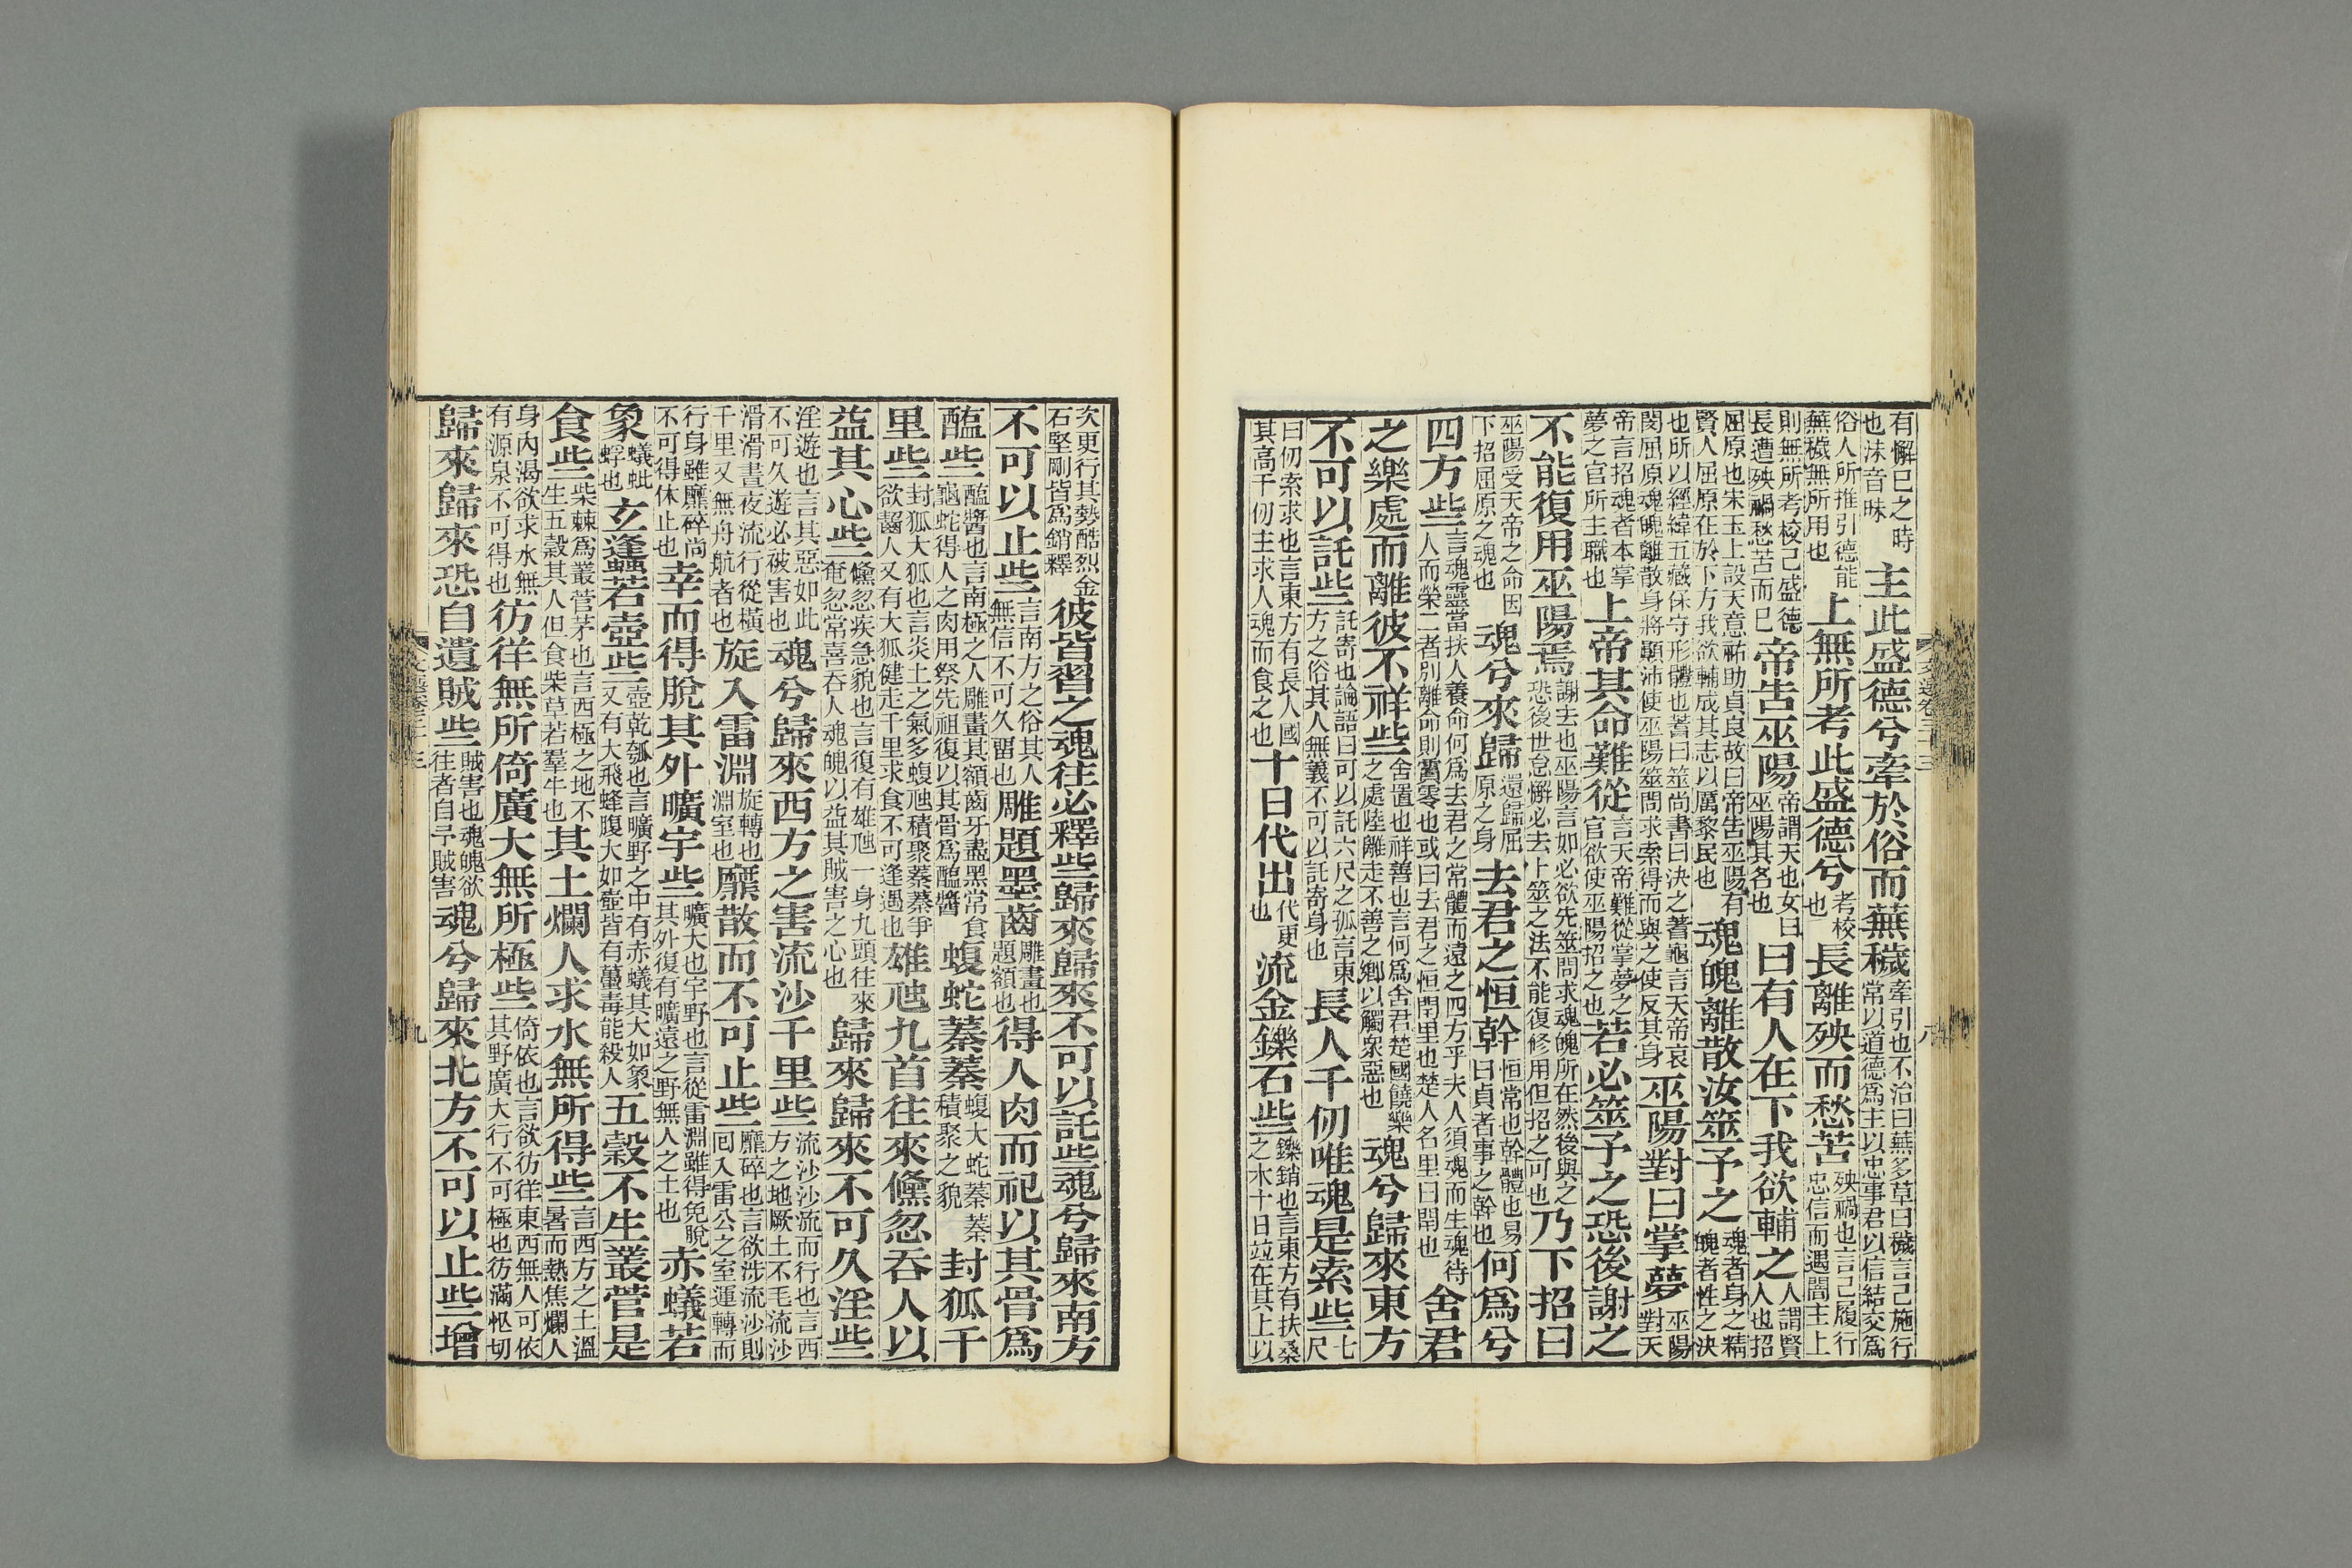 有懈已之時也沬音昧主此盛德兮牽於俗而蕪穢牽引也不治曰蕪多草曰穢言己施行常以道德爲主以忠事君以信結交爲
俗人所推引德能蕪穢無所用也上無所考此盛德兮考校也長離殃而愁苦殃禍也言己履行忠信而遇闇主上
則無所考校己盛德長遭殃禍愁苦而已帝告巫陽帝謂天也女曰巫陽其名也曰有人在下我欲輔之人謂賢人也招
屈原也宋玉上設天意祐助貞良故曰帝告巫陽有賢人屈原在於下方我欲輔成其志以厲黎民也魂魄離散汝筮予之魂者身之精魄者性之決
也所以經緯五藏保守形體也蓍曰筮尚書曰決之蓍龜言天帝哀閔屈原魂魄離散身將顛沛使巫陽筮問求索得而與之使反其身巫陽對曰掌夢巫陽對天
帝言招魂者本掌夢之官所主職也上帝其命難從言天帝難從掌夢之官欲使巫陽招之也若必筮予之恐後謝之
不能復用巫陽焉謝去也巫陽言如必欲先筮問求魂魄所在然後與之恐後世怠懈必去卜筮之法不能復修用但招之可也乃下招曰
巫陽受天帝之命因下招屈原之魂也魂兮來歸還歸屈原之身去君之恒幹恒常也幹體也易曰貞者事之幹也何爲兮
四方些言魂靈當扶人養命何爲去君之常體而遠之四方乎夫人須魂而生魂待人而榮二者別離命則實零也或曰去君之恒閈里也楚人名里曰閈也舍君
之樂處而離彼不祥些舍置也祥善也言何爲舍君楚國饒樂之處陸離走不善之鄉以觸衆惡也魂兮歸來東方
不可以託些託寄也論語曰可以託六尺之孤言東方之俗其人無義不可以託寄身也長人千仞唯魂是索些七尺
曰仞索求也言東方有長人國其高千仞主求人魂而食之也十日代出代更也流金鑠石些鑠銷也言東方有扶桑之木十日竝在其上以
次更行其勢酷烈金石堅剛皆爲銷釋彼皆習之魂往必釋些歸來歸來不可以託些魂兮歸來南方
不可以止些言南方之俗其人無信不可久留也雕題黑齒雕畫也題額也得人肉而祀以其骨爲
醢些醢醬也言南極之人雕畫其額齒牙盡黑常食蠃蛇得人之肉用祭先祖復以其骨爲醢醬蝮蛇蓁蓁蝮大蛇蓁蓁積聚之貌封狐千
里些封狐大狐也言炎土之氣多蝮虺積聚蓁蓁爭欲齧人又有大狐健走千里求食不可逢遇也雄虺九首往來儵忽吞人以
益其心些儵忽疾急貌也言復有雄虺一身九頭往來奄忽常喜吞人魂魄以益其賊害之心也歸來歸來不可久淫些
淫遊也言其惡如此不可久遊必被害也魂兮歸來西方之害流沙千里些流沙沙流而行也言西方之地厥土不毛流沙
滑滑晝夜流行從橫千里又無舟航者也旋入雷淵旋轉也淵室也靡散而不可止些靡碎也言欲涉流沙則囘入雷公之室運轉而
行身雖靡碎尚不可得休止也幸而得脫其外曠宇些曠大也宇野也言從雷淵雖得免脫其外復有曠遠之野無人之土也赤蟻若
象蟻蚍蜉也玄蠭若壺些壺乾瓠也言曠野之中有赤蟻其大如象又有大飛蜂腹大如壺皆有蠚毒能殺人五穀不生叢菅是
食些柴棘爲叢菅茅也言西極之地不生五穀其人但食柴草若羣牛也其土爛人求水無所得些言西方之土溫暑而熱焦爛人
身內渴欲求水無有源泉不可得也彷徉無所倚廣大無所極些倚依也言欲彷徉東西無人可依其野廣大行不可極也彷滿怱切
歸來歸來恐自遺賊些賊害也魂魄欲往者自予賊害魂兮歸來北方不可以止些增